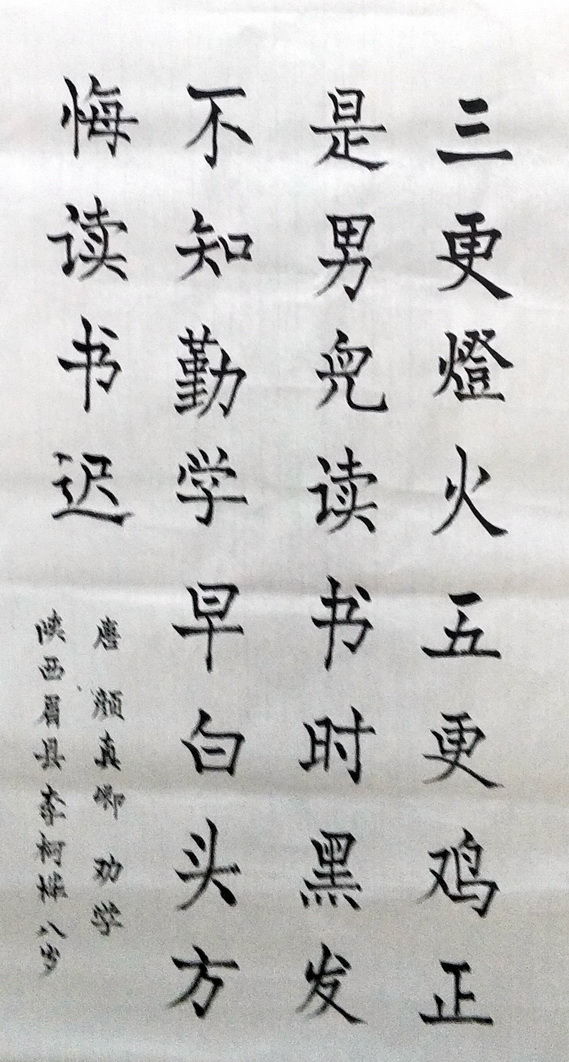 三更燈火五更鸡正
是男兒读书时黑发
不知勤学早白头方
悔读书迟
唐 颜真卿 劝学
陕西眉县李柯桦八岁